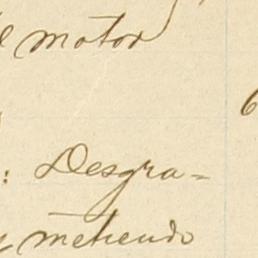 motor
: Desgra-
metiendo